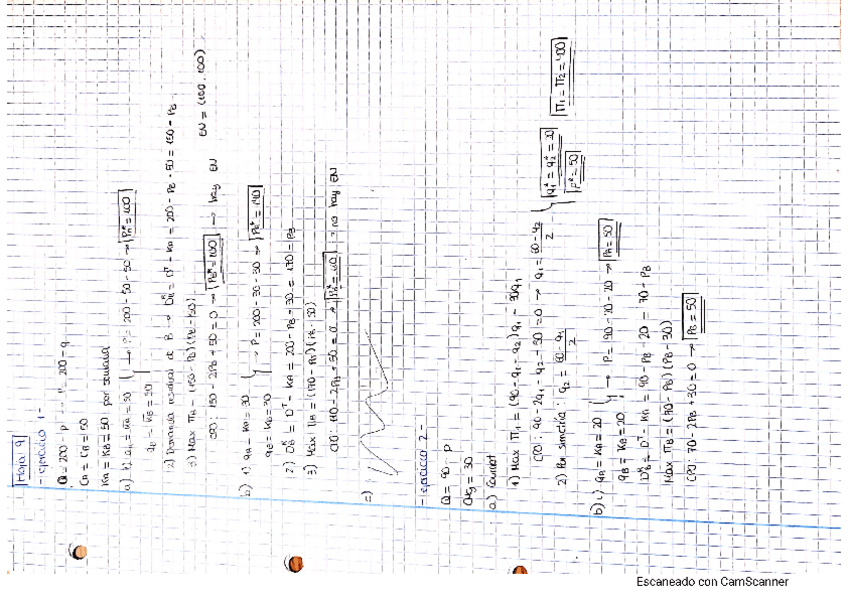 Hoja 9
- Ejercicio 1 -
Q = 200 - p → P = 200 - q
CA = CB = 50
KA = KB = 50 por semana
a) 1) qA = KA = 50 } → P = 200 - 50 - 50 → PA* = 100
qB = KB = 50
2) Demanda residual de B → DBR = DT - KA = 200 - PB - 50 = 150 - PB
3) Max ΠB = (150 - PB) (PB - 50)
CPO: 150 - 2PB + 50 = 0 → PB* = 100 → hay EN EN = (100, 100)
b) 1) qA = KA = 30 } → P = 200 - 30 - 30 → PA* = 140
qB = KB = 30
2) DBR = DT - KA = 200 - PB - 30 = 170 - PB
3) Max ΠB = (170 - PB) (PB - 50)
CPO: 170 - 2PB + 50 = 0 → = 110 → no hay EN
c)
- Ejercicio 2 -
Q = 90 - p
CMg = 30
a) Cournot
1) Max Π1 = (90 - q1 - q2) q1 - 30q1
CPO: 90 - 2q1 - q2 - 30 = 0 → q1 = 60 - q2 / 2
2) Por simetría: q2 = 60 - q1 / 2 } q1* = q2* = 20
P* = 50
Π1 = Π2 = 400
b) 1) qA = KA = 20 } → P = 90 - 20 - 20 → PA = 50
qB = KB = 20
DBR = DT - KA = 90 - PB - 20 = 70 - PB
Max ΠB = (70 - PB) (PB - 30)
CPO: 70 - 2PB + 30 = 0 → PB = 50
Escaneado con CamScanner